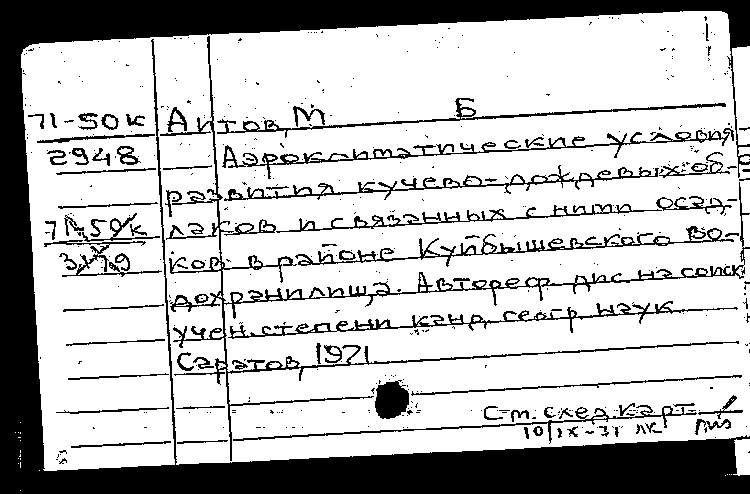 71-50к Аитов, М Б
2948 Аэроклиматические условия
развития кучево-дождевых об-
71-50/к лаков и связанных с ними осад-
ков в районе Куйбышевского во-
дохранилища. Автореф. дис. на соиск
учен. степени канд. геогр. наук
Саратов, 1971
См. след карт.
10/IX-71